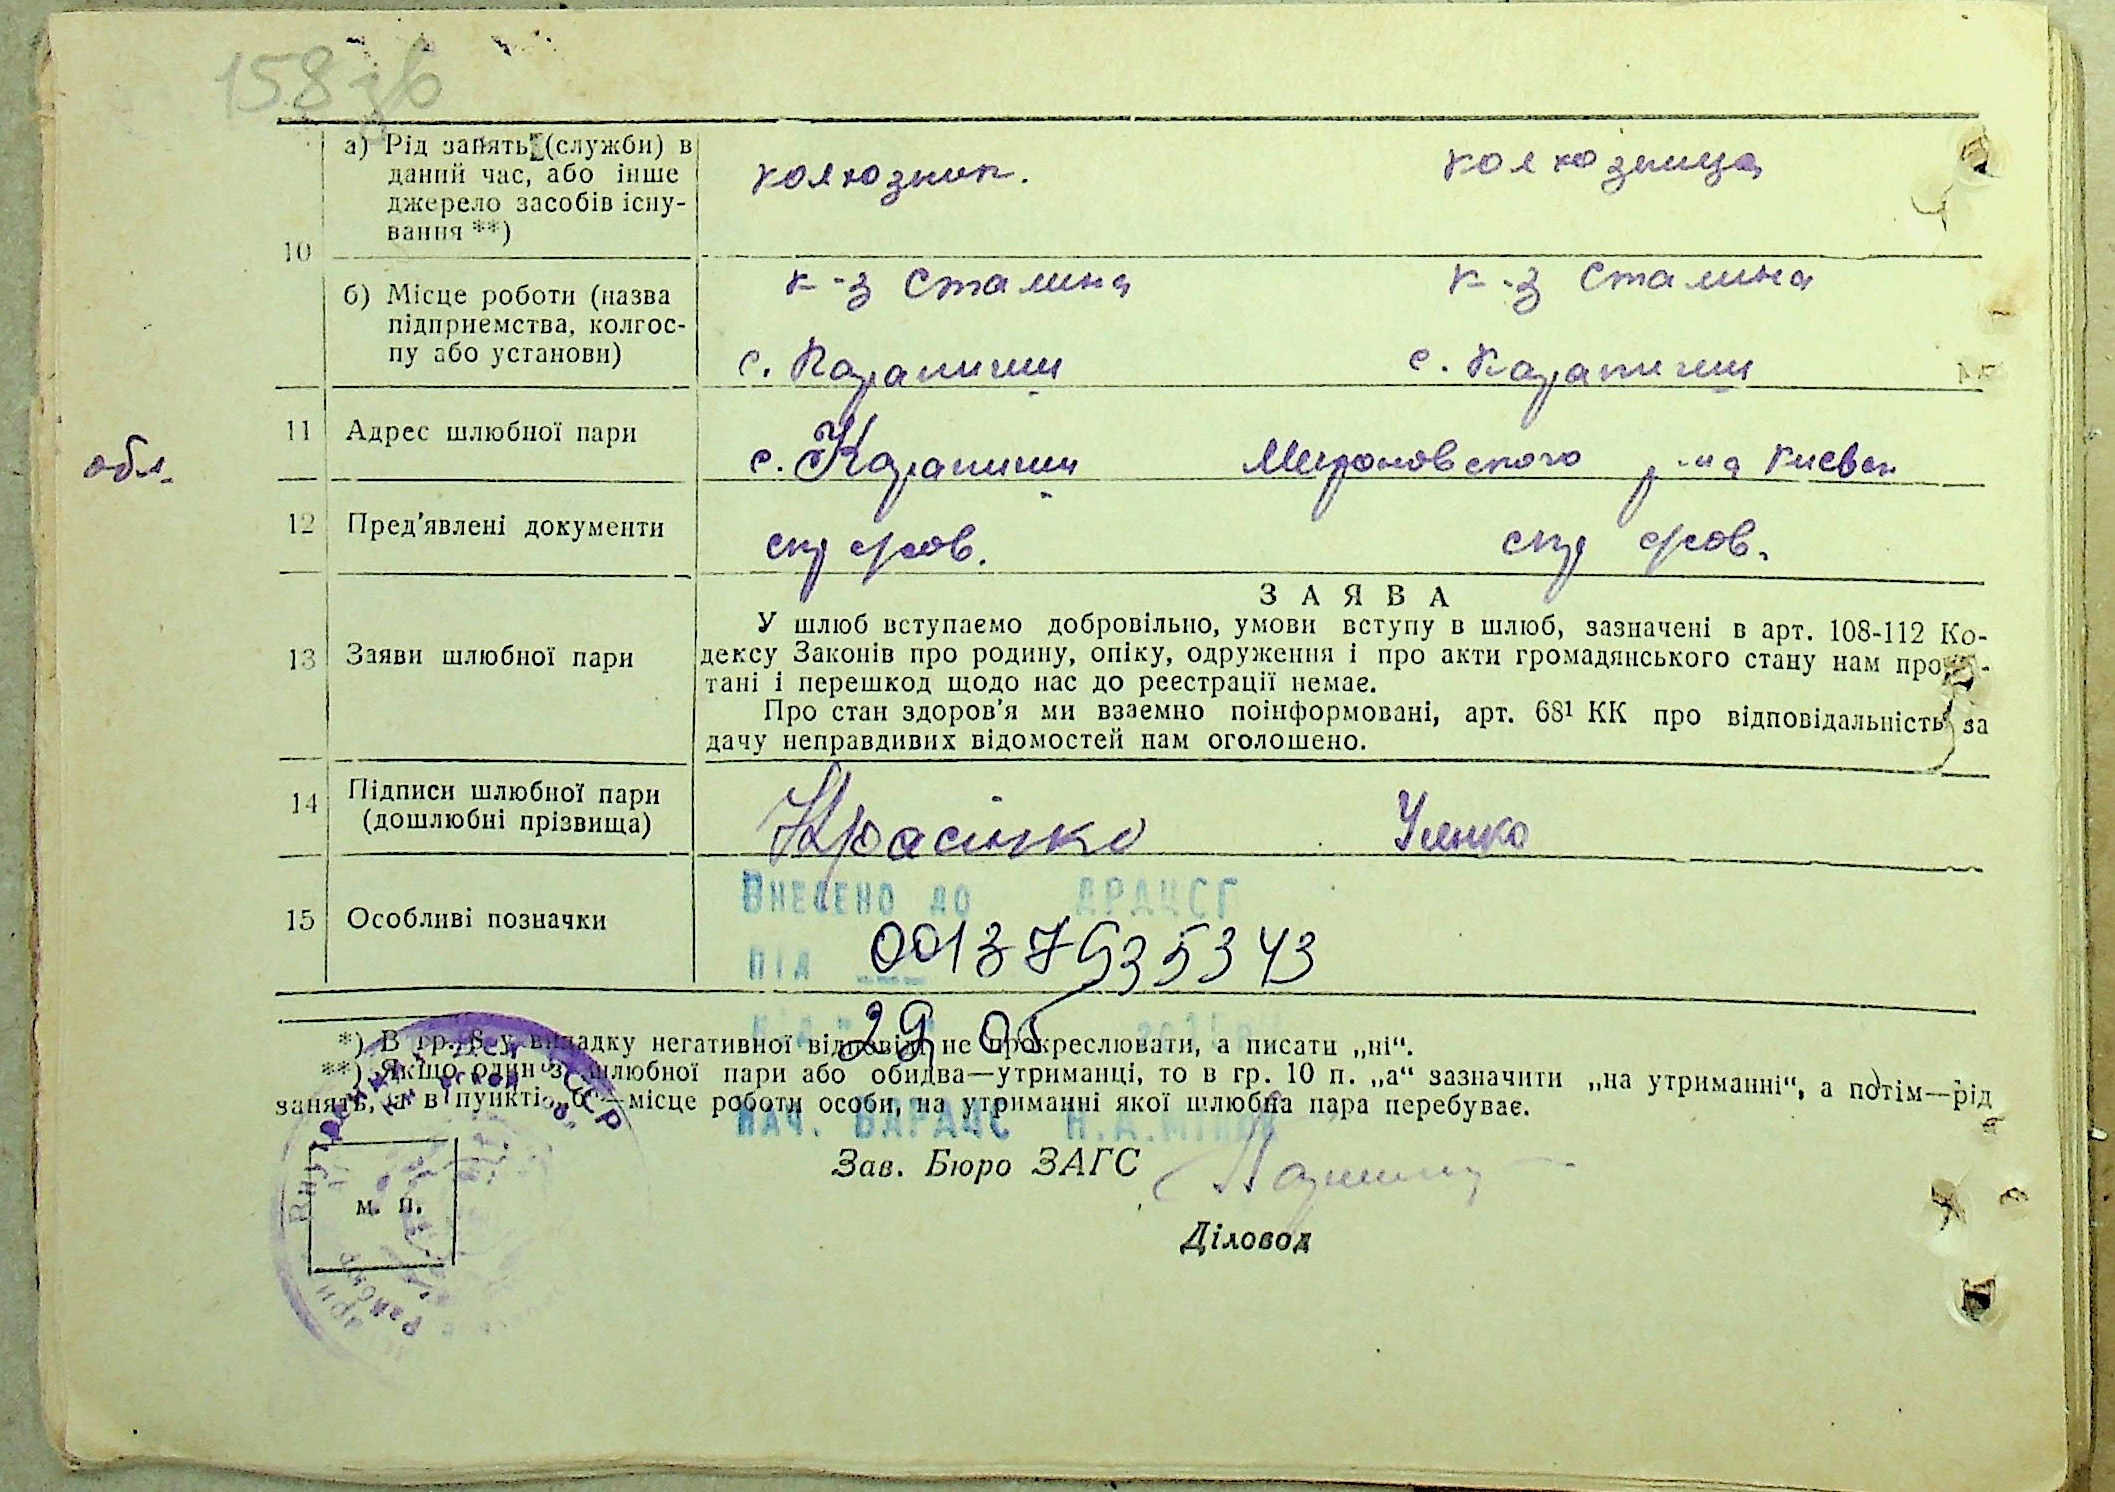 158 зв
а) Рід занять (служби) в
даний час, або інше
джерело засобів існу-
вання **)
колхозник.
колхозница
10
б) Місце роботи (назва
підприємства, колгос-
пу або установи)
к-з Сталина
к-з Сталина
с. Карапиши
с. Карапиши
11 Адрес шлюбної пари
с. Карапиши Мироновского р-на Киевск
обл.
12 Пред'явлені документи
13 Заяви шлюбної пари
ЗАЯВА
У шлюб вступаємо добровільно, умови вступу в шлюб, зазначені в арт. 108-112 Ко-
дексу Законів про родину, опіку, одруження і про акти громадянського стану нам прочи-
тані і перешкод щодо нас до реєстрації немає.
Про стан здоров'я ми взаємно поінформовані, арт. 68¹ КК про відповідальність за
дачу неправдивих відомостей нам оголошено.
14 Підписи шлюбної пари
(дошлюбні прізвища)
Красінко
Усенко
15 Особливі позначки
ВНЕСЕНО ДО ДРАЦСГ
ПІД 00137535343
29 05
*) В гр. 8 у випадку негативної відповіді не прокреслювати, а писати „ні“.
**) Якщо один з шлюбної пари або обидва—утриманці, то в гр. 10 п. „а“ зазначити „на утриманні“, а потім—рід
занять, а в пункті „б“—місце роботи особи, на утриманні якої шлюбна пара перебуває.
НАЧ. ВДРАЦС
Зав. Бюро ЗАГС
м. п.
Діловод